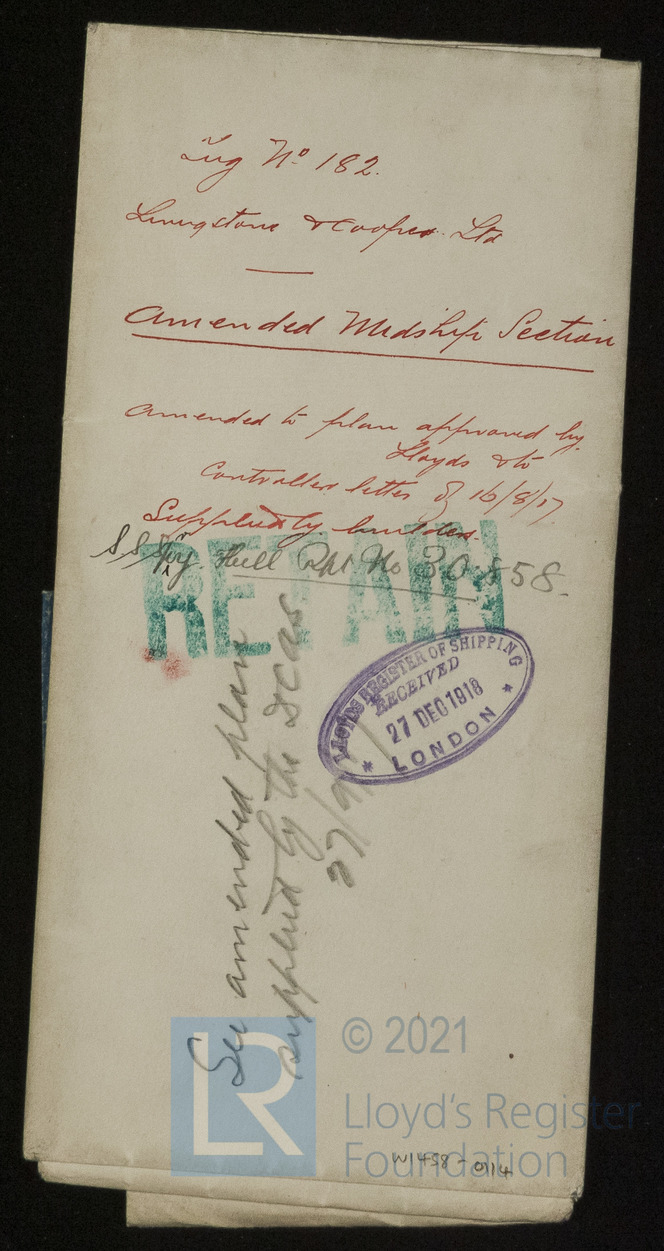 Tug Nº 182.
Livingstone & Cooper Ltd
Amended Midship Section
Amended to plan approved by
Lloyds & to
Controllers letter of 16/8/17
Supplied by builders.
Hull Rpt No 30858.
RETAIN
LLOYDS REGISTER OF SHIPPING
RECEIVED
27 DEC 1918
LONDON
See amended plan
supplied by the
27/9/
© 2021
LR
Lloyd's Register
Foundation
W1458-0114